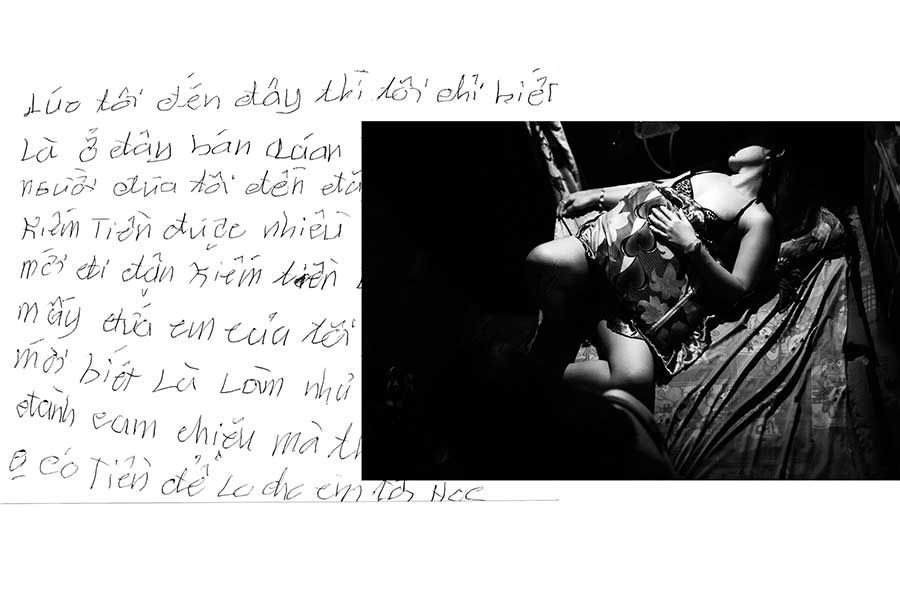 Lúc tôi đến đây thì tôi chỉ biết
Là ở đây bán quán
người đưa tôi đến
kiếm Tiền được nhiều
mới đi dặn kiếm tiền
mấy đứa em của tôi
mới biết Là Làm như
đành cam chiệu mà
có Tiền để Lo cho em tôi Học